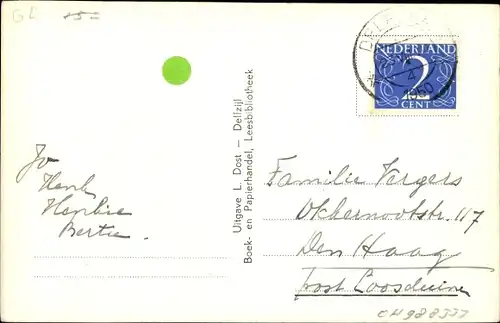 GL 15=
NEDERLAND
2
CENT
4
1950
Uitgave L. Dost – Delfzijl
Boek- en Papierhandel, Leesbibliotheek
Jo
Henk
Bertie.
Familie Vergers
Okkernootstr. 117
Den Haag
post Loosduinen